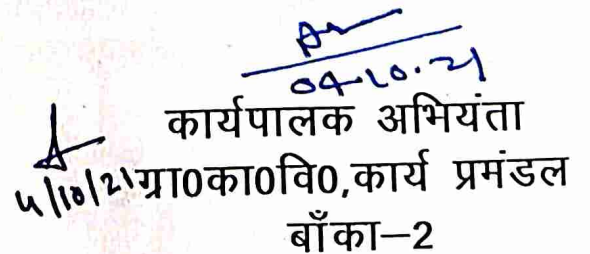 04.10.21
कार्यपालक अभियंता
4/10/21 ग्रा0का0वि0,कार्य प्रमंडल
बाँका–2